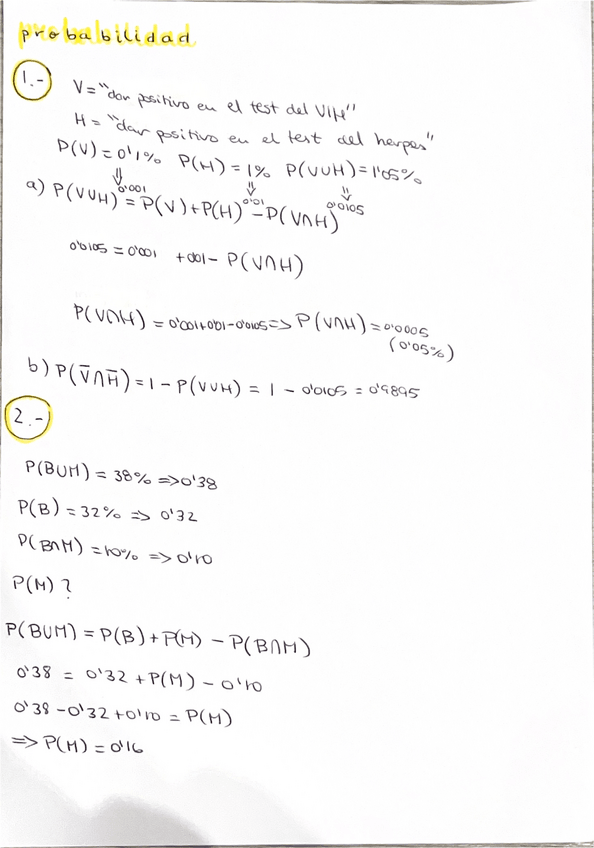 probabilidad
1.-
V = "dar positivo en el test del VIH"
H = "dar positivo en el test del herpes"
P(V) = 0'1% P(H) = 1% P(V∪H) = 1'05%
⇓ ⇓ ⇓
0'001 0'01 0'0105
a) P(V∪H) = P(V) + P(H) - P(V∩H)
0'0105 = 0'001 + 001 - P(V∩H)
P(V∩H) = 0'001+0'01-0'0105 => P(V∩H) = 0'0005
(0'05%)
b) P(V̄∩H̄) = 1 - P(V∪H) = 1 - 0'0105 = 0'9895
2.-
P(B∪M) = 38% => 0'38
P(B) = 32% => 0'32
P(B∩M) = 10% => 0'10
P(M) ?
P(B∪M) = P(B) + P(M) - P(B∩M)
0'38 = 0'32 + P(M) - 0'10
0'38 - 0'32 + 0'10 = P(M)
=> P(M) = 0'16